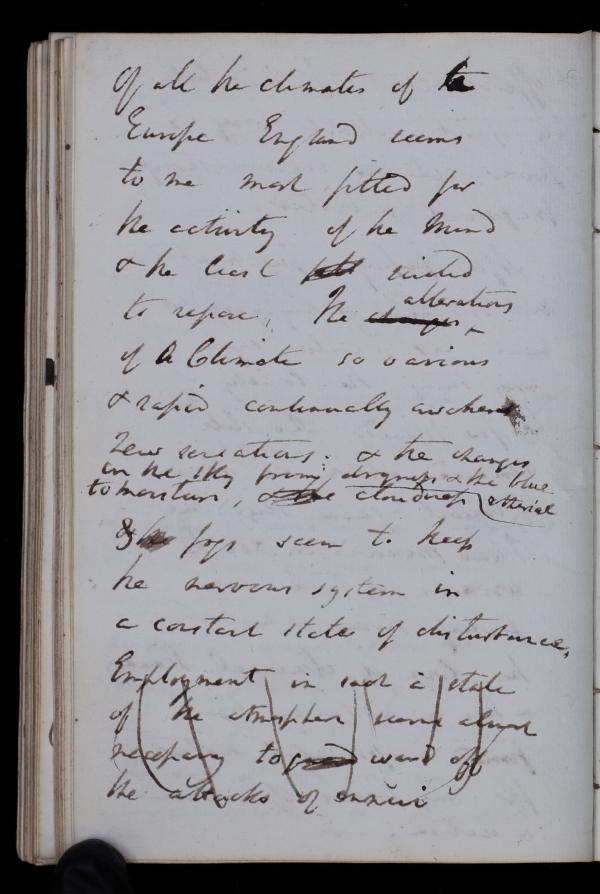 Of all the climates of
Europe England seems
to me most fitted for
the activity of the Mind
& the least suited
to repose. The changes alterations
of A Climate so various
& rapid continually awakens
new sensations. & the changes
in the sky from dryness & the blue
to moisture, cloudiness etherial
& fogs seem to keep
the nervous system in
a constant state of disturbance.
Employment in such a state
of the atmosphere seems almost
necessary to ward off
the attacks of ennui